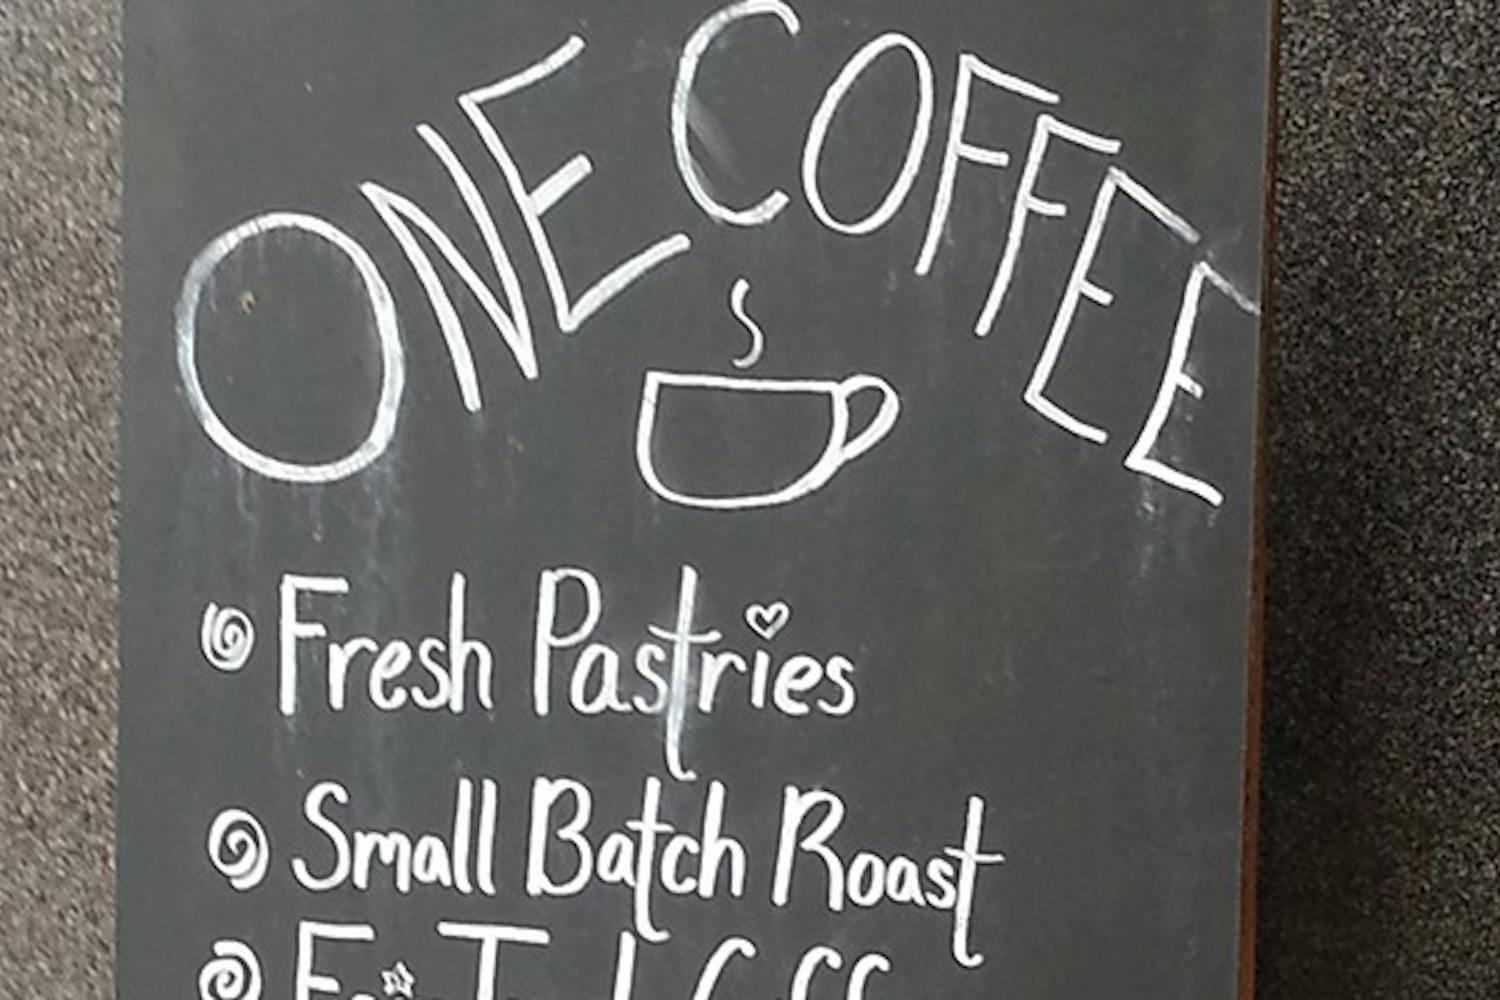 ONE COFFEE
Fresh Pastries
Small Batch Roast